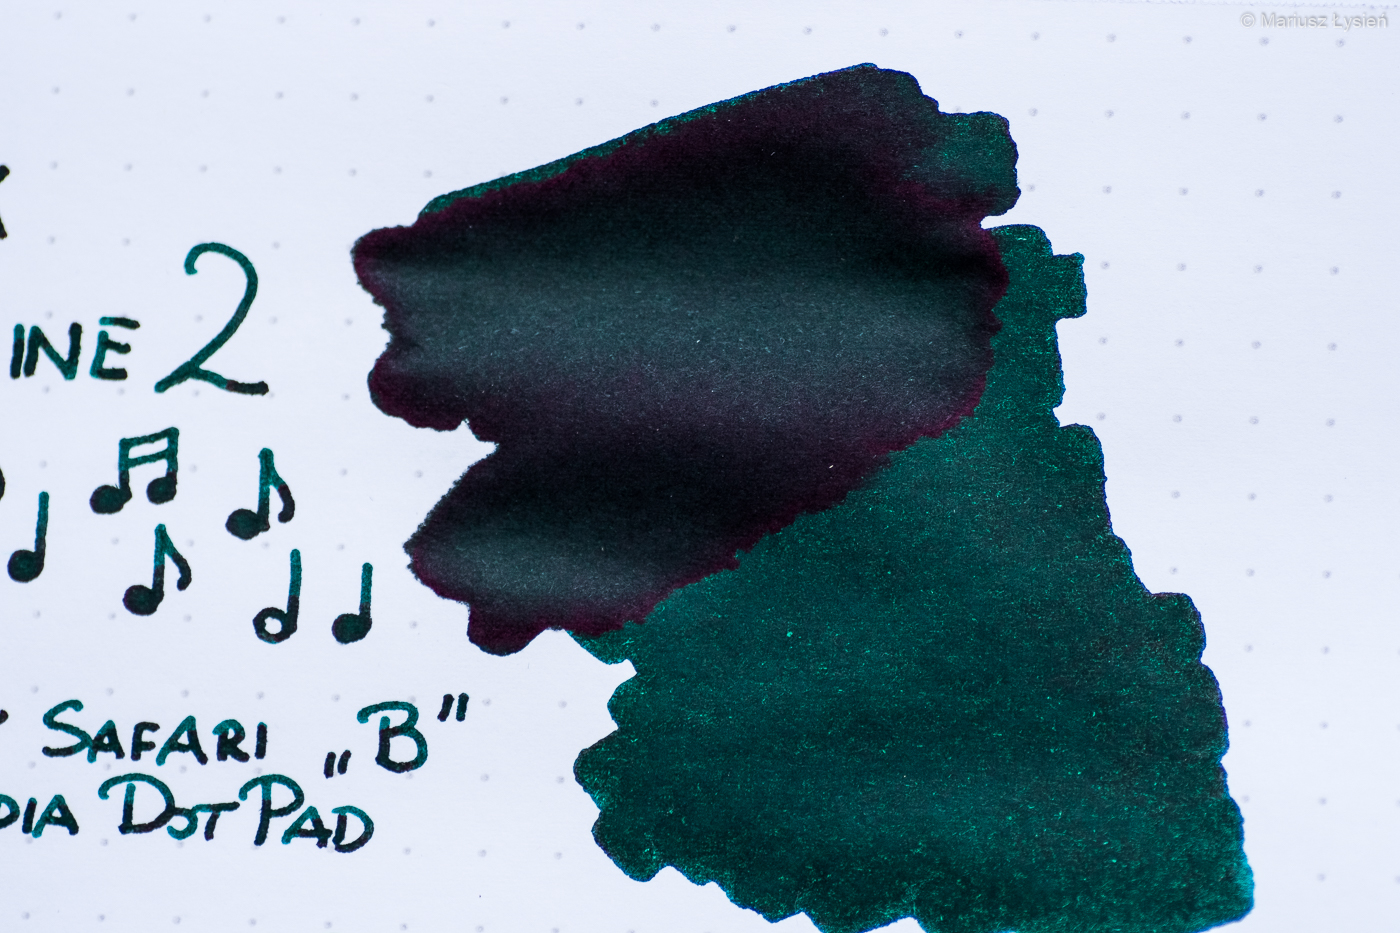 © Mariusz Łysień
INE 2
SAFARI „B"
DIA DOT PAD